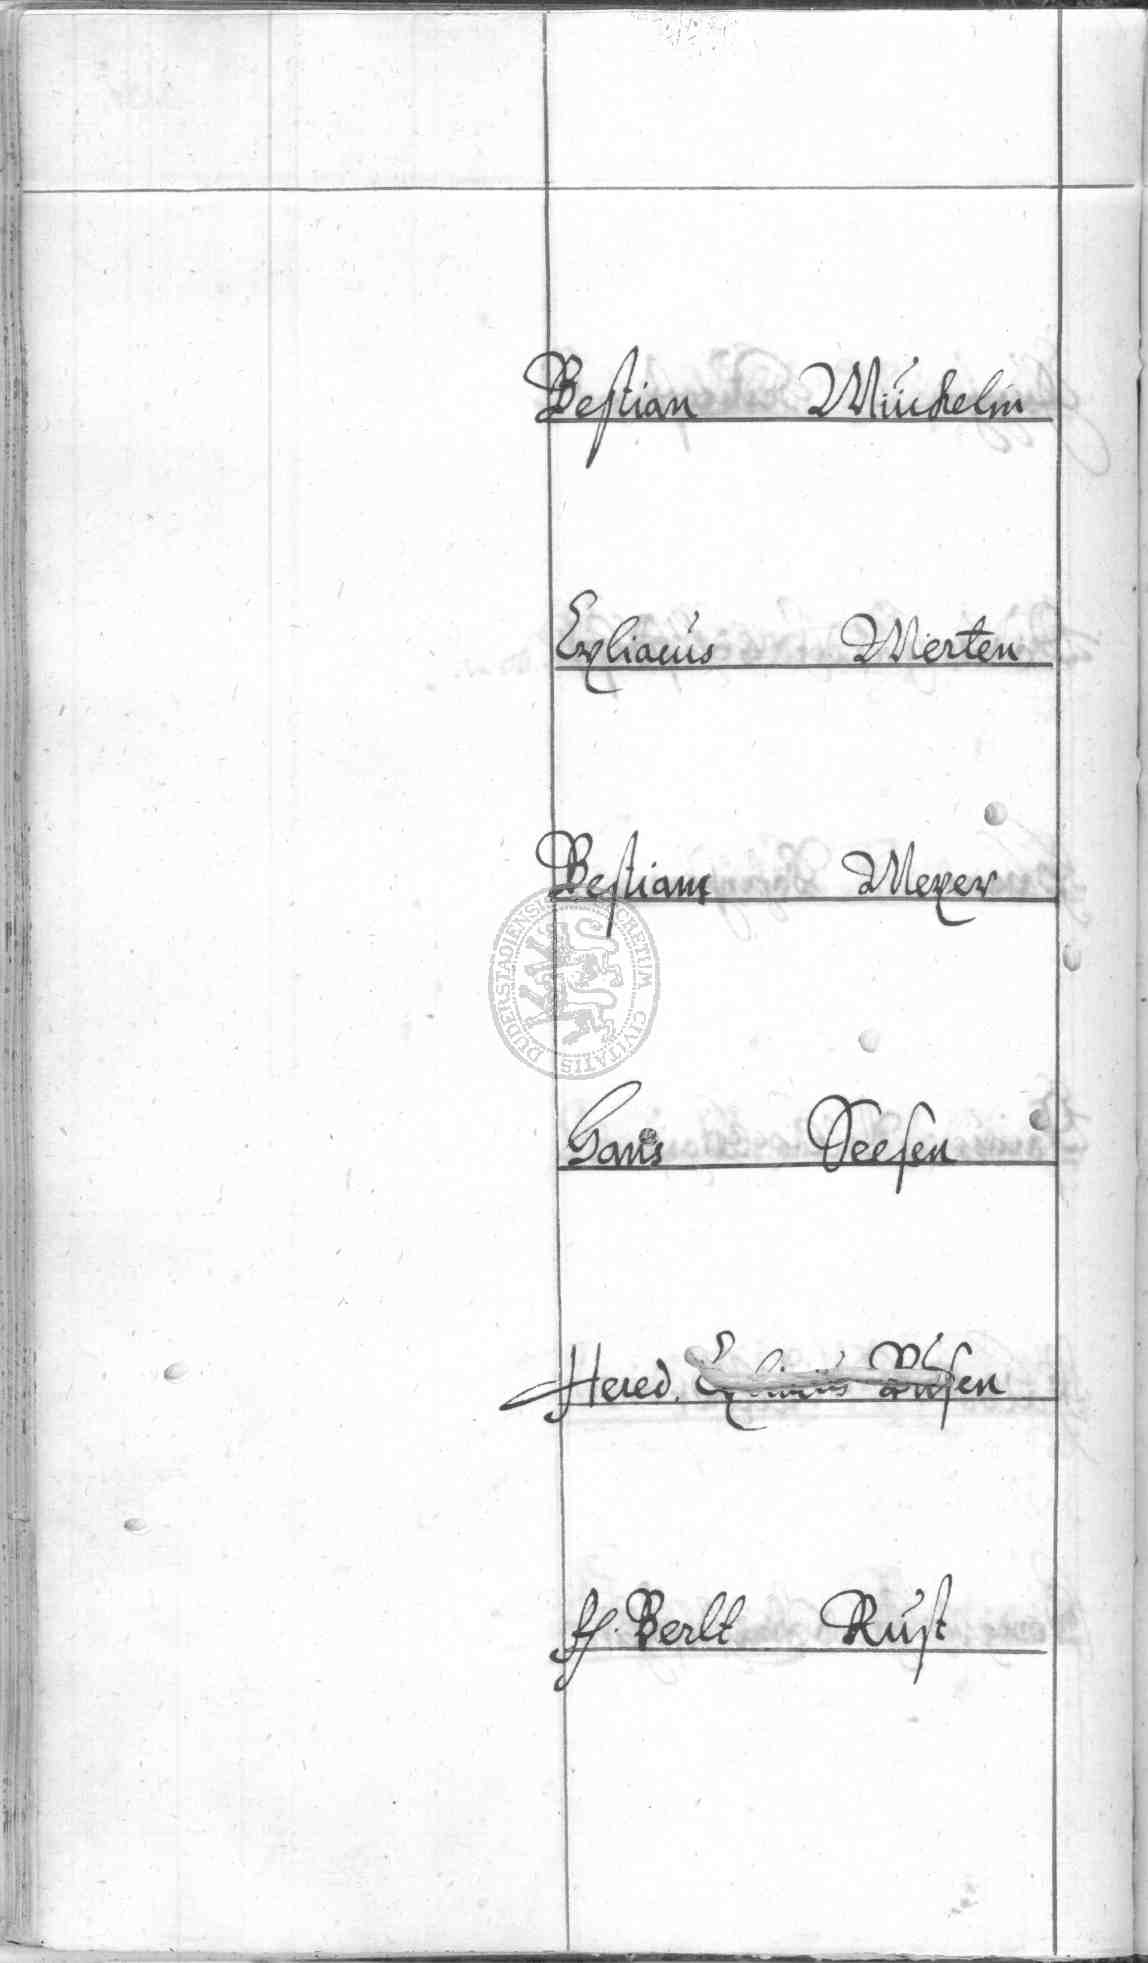 Bestian Müchelin
Exliacus Merten
Bestian Meyer
DUDERSTADIENSIS SECRETUM CIVITATIS
Hans Seesen
Hered.
H. Berlt Rust